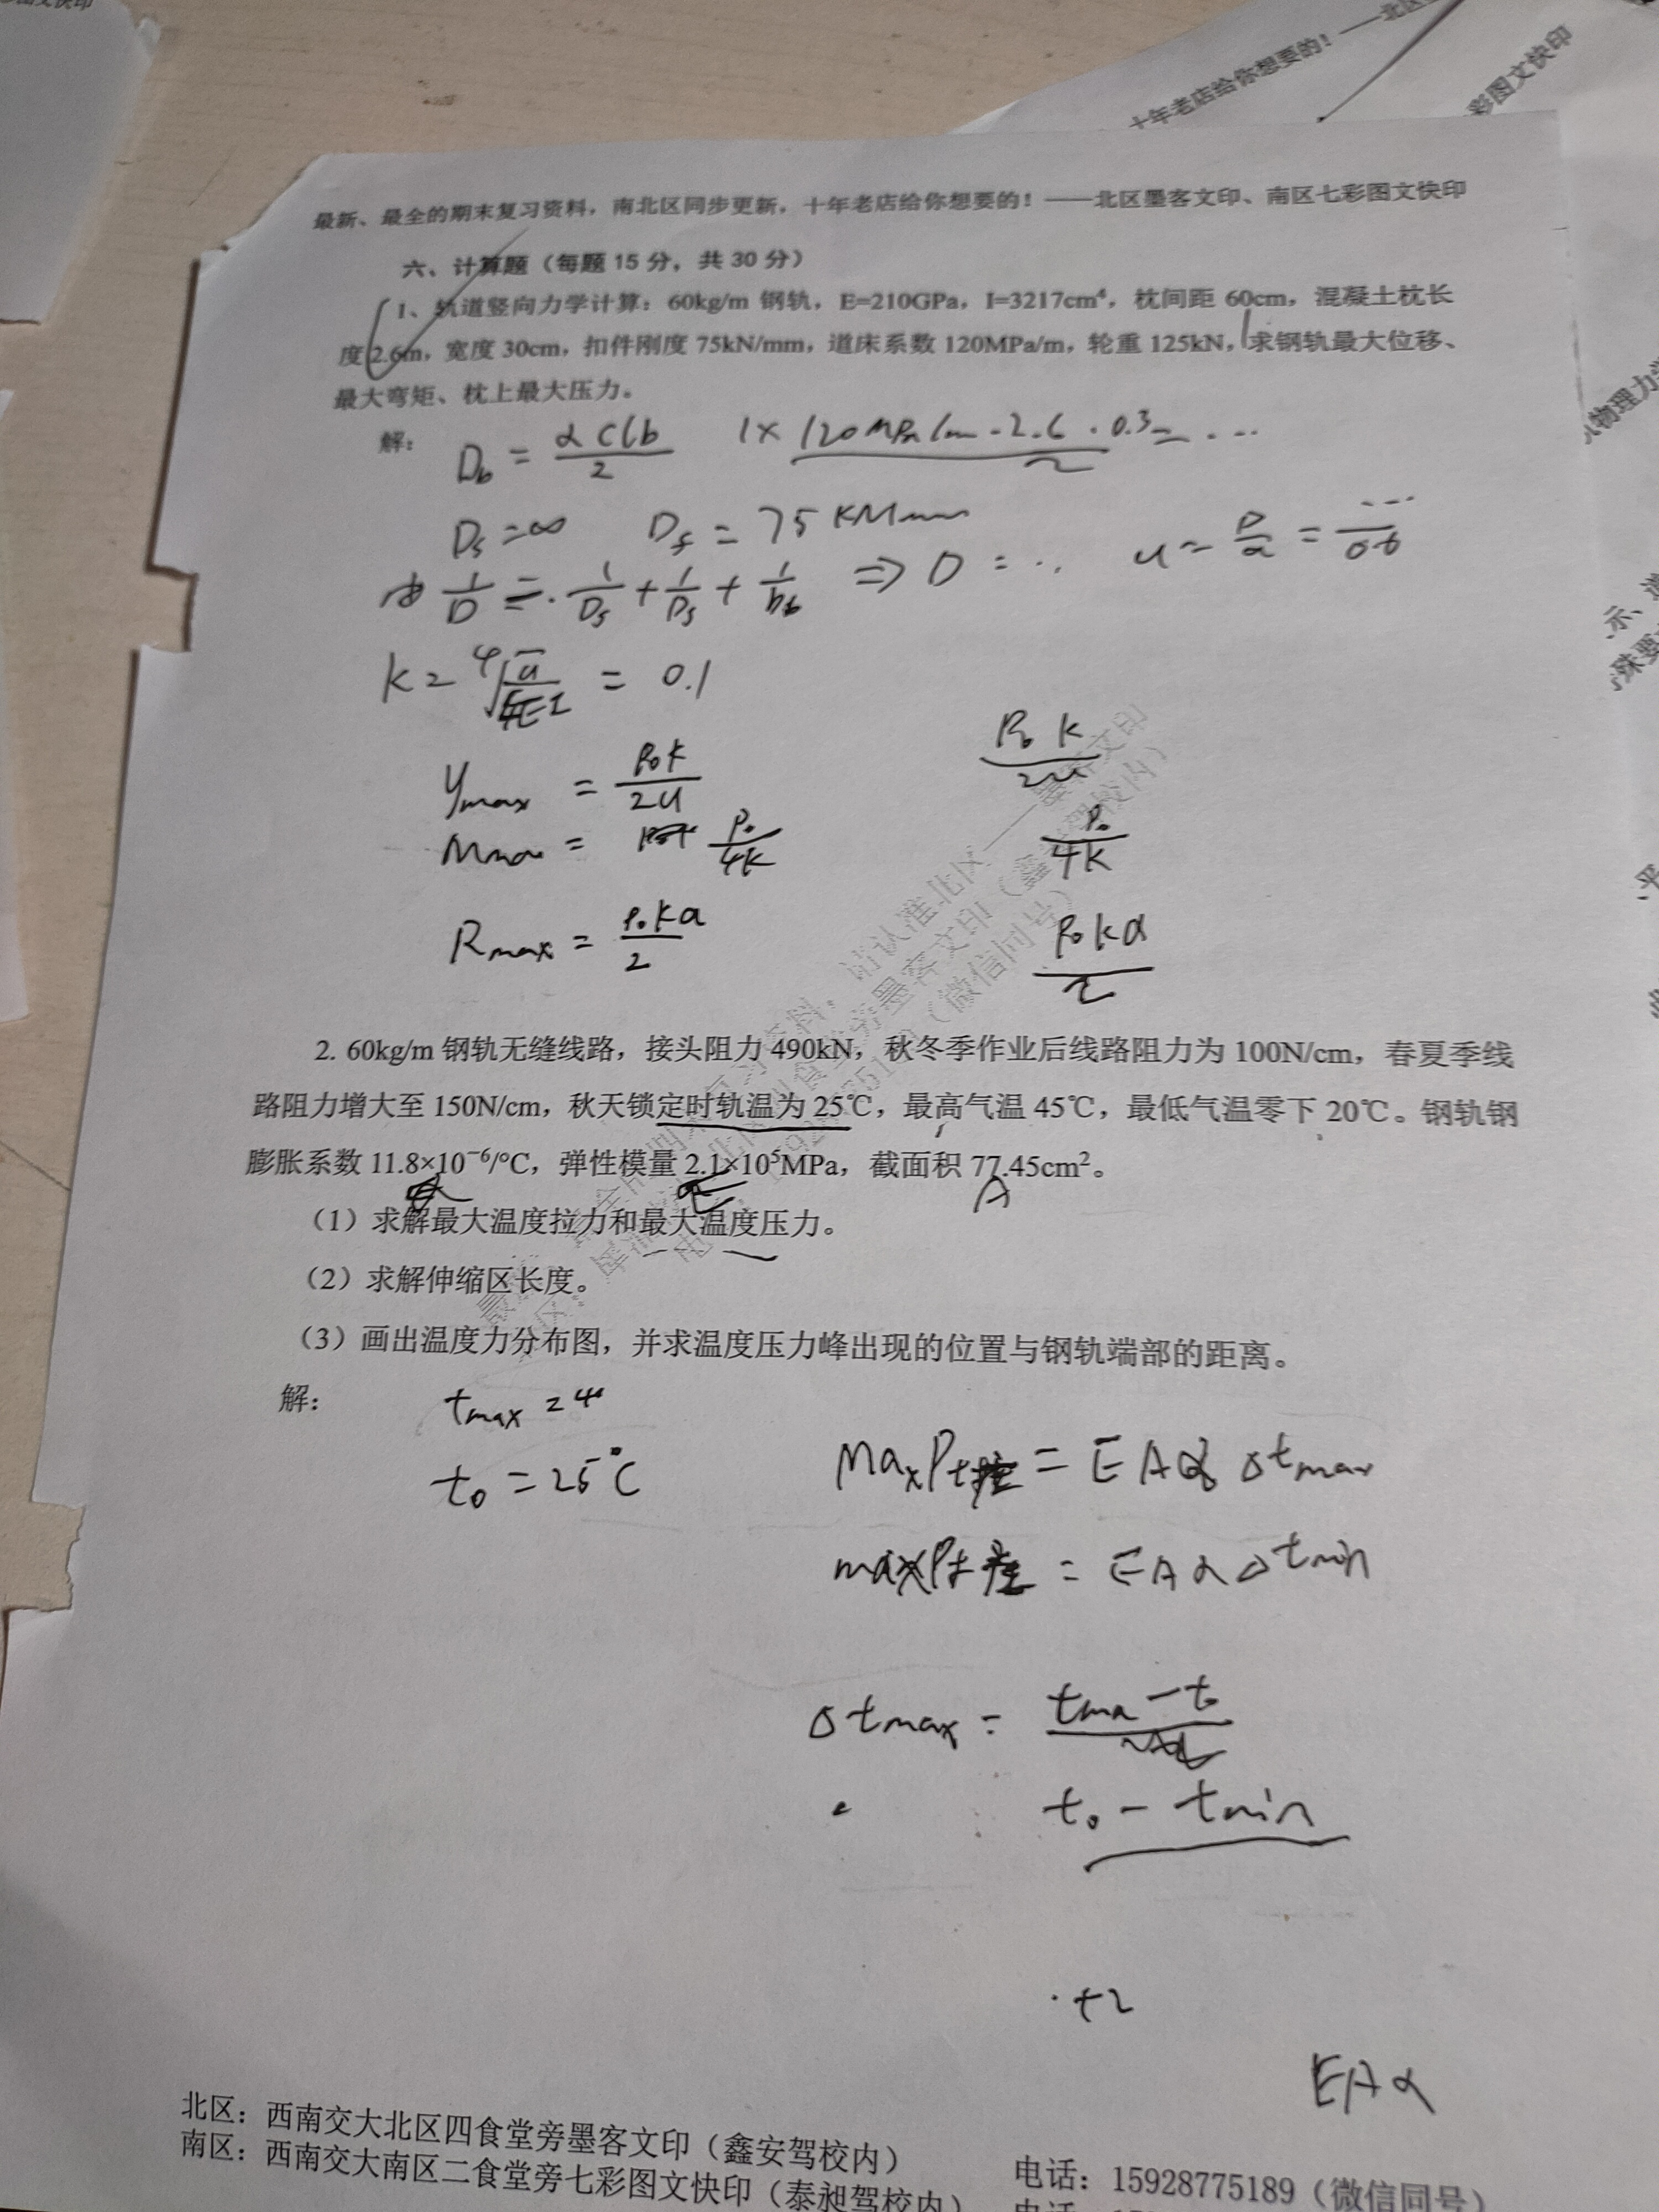 彩图文快印
十年老店给你想要的！——北区
彩图文快印
最新、最全的期末复习资料，南北区同步更新，十年老店给你想要的！——北区墨客文印、南区七彩图文快印
六、计算题（每题 15 分，共 30 分）
1、轨道竖向力学计算：60kg/m 钢轨，E=210GPa，I=3217cm⁴，枕间距 60cm，混凝土枕长
度 2.6m，宽度 30cm，扣件刚度 75kN/mm，道床系数 120MPa/m，轮重 125kN，求钢轨最大位移、
最大弯矩、枕上最大压力。
解：
D_b = αClb/2 1× 120MPa/m·2.6·0.3/2 = ...
D_s = ∞ D_f = 75 KN/mm u = D/a = .../0.6
由 1/D = 1/D_s + 1/D_f + 1/D_b ⇒ D = ...
k = ⁴√(u/4EI) = 0.1
y_max = P₀k/2u P₀k/2u
M_max = P₀/4k P₀/4k
R_max = P₀ka/2 P₀ka/2
2. 60kg/m 钢轨无缝线路，接头阻力 490kN，秋冬季作业后线路阻力为 100N/cm，春夏季线
路阻力增大至 150N/cm，秋天锁定时轨温为 25℃，最高气温 45℃，最低气温零下 20℃。钢轨钢
膨胀系数 11.8×10⁻⁶/°C，弹性模量 2.1×10⁵MPa，截面积 77.45cm²。
α E A
（1）求解最大温度拉力和最大温度压力。
（2）求解伸缩区长度。
（3）画出温度力分布图，并求温度压力峰出现的位置与钢轨端部的距离。
解：
t_max = 4
t₀ = 25°C
Max P_t = EAαΔt_max
max P_t = EAαΔt_min
Δt_max = t_max - t₀
t₀ - t_min
+2
EAα
北区：西南交大北区四食堂旁墨客文印（鑫安驾校内）
南区：西南交大南区二食堂旁七彩图文快印（泰昶驾校内）
电话：15928775189（微信同号）